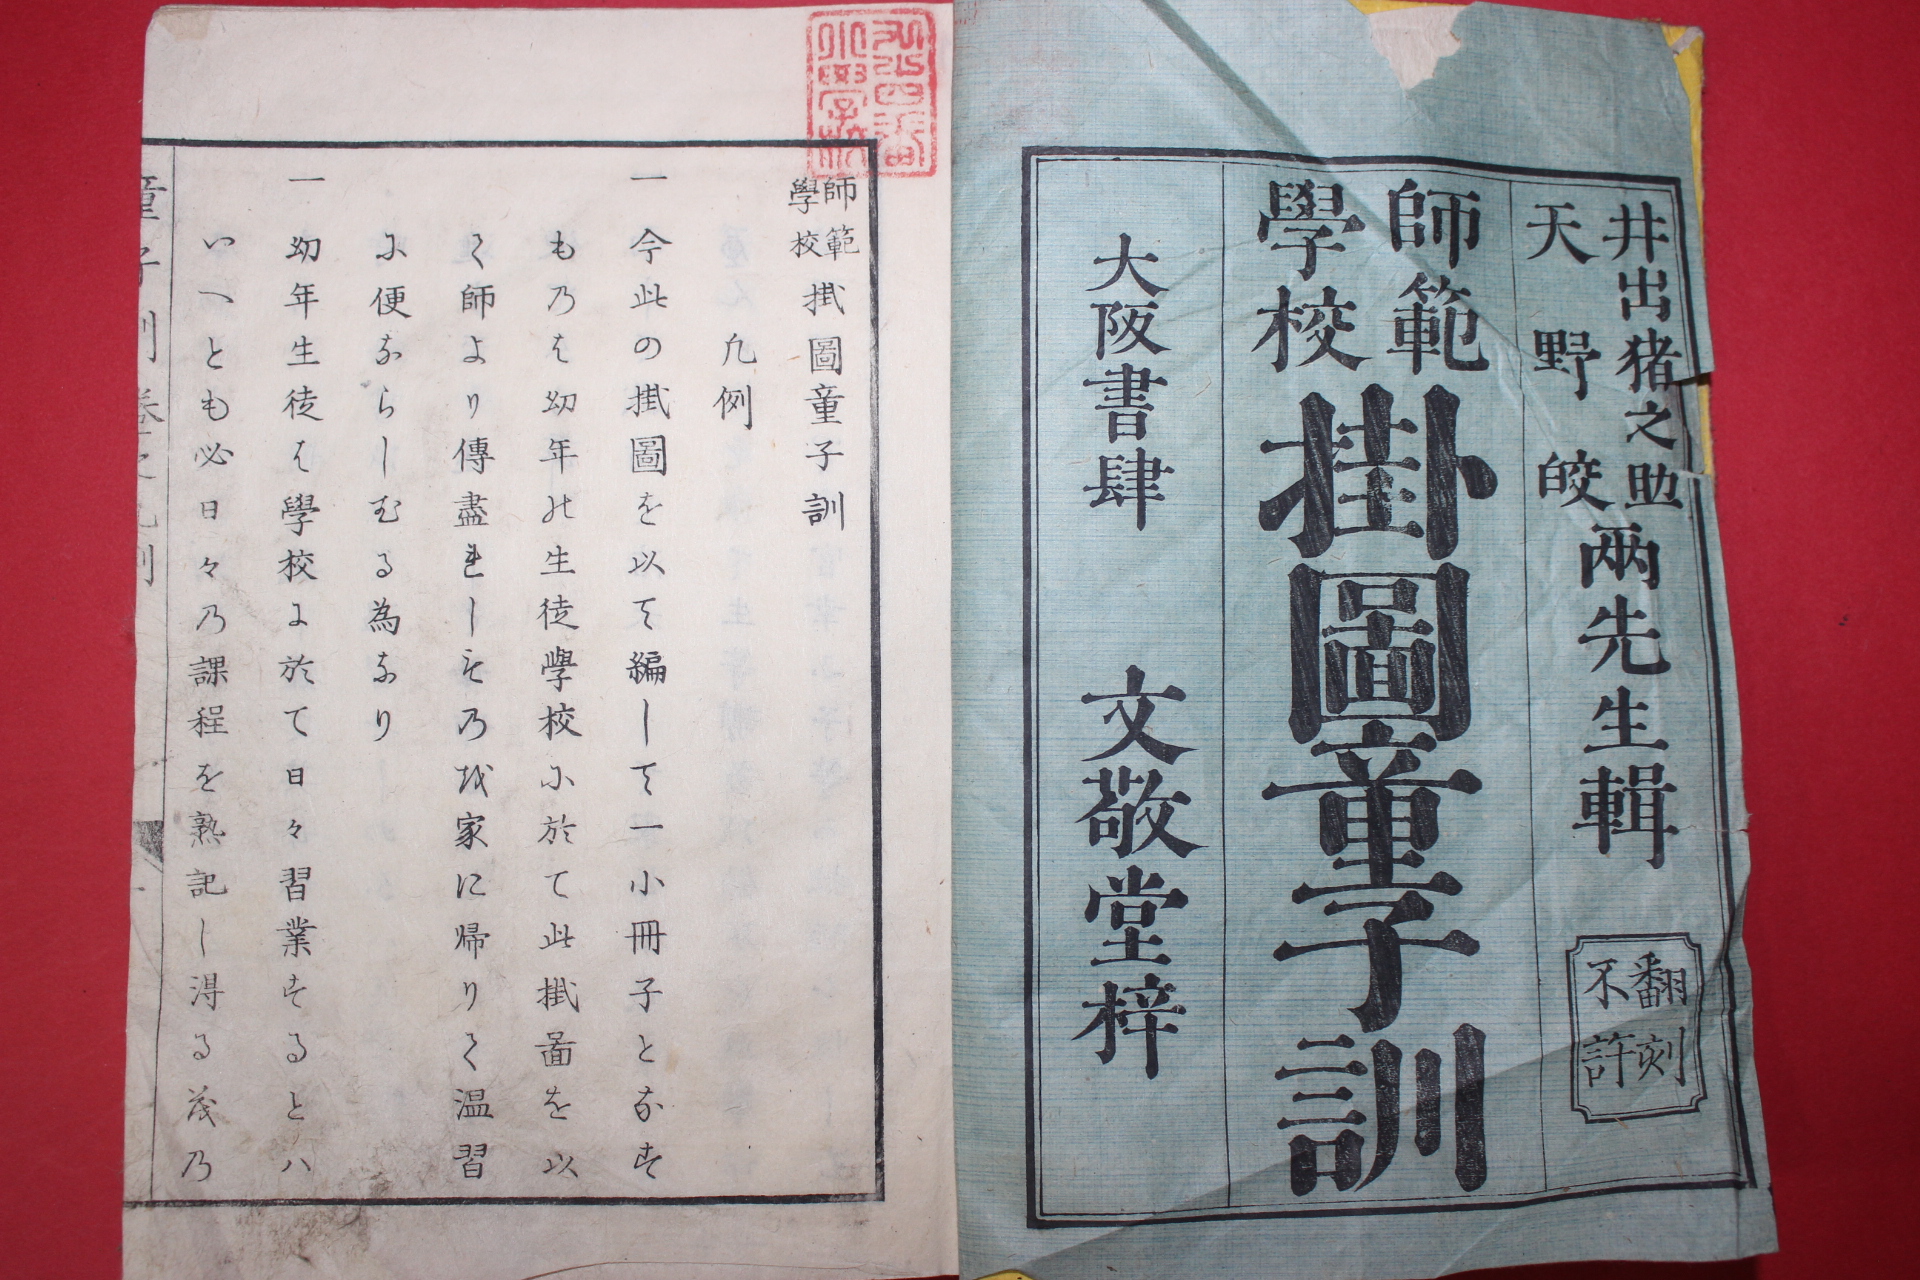 井出猪之助
天野皎
両先生輯
翻刻
不許
師範
學校
掛圖童子訓
大阪書肆 文敬堂梓
師範
學校
掛圖童子訓
凢例
一 今此の掛圖を以て編して一小冊子となす
ものは幼年の生徒學校に於て此掛啚を以
て師より傳盡れしもの越家に帰りて温習
に便ならしむる為なり
一 幼年生徒は學校に於て日々習業するとハ
いへとも必日々の課程を熟記し得る茂の